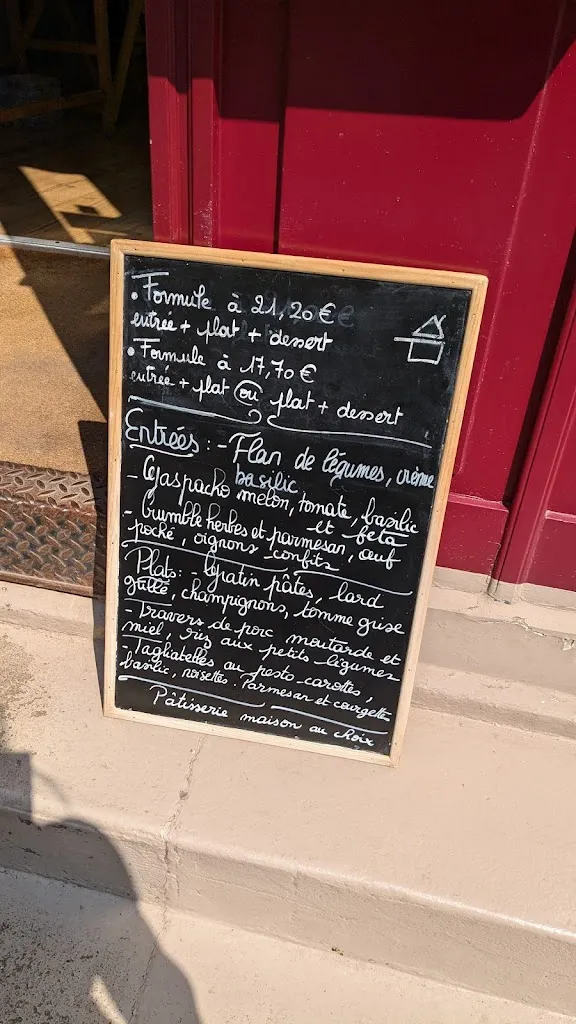 • Formule à 21,20€
entrée + plat + dessert
• Formule à 17,70€
entrée + plat ou plat + dessert
Entrées : - Flan de légumes, crème
basilic
- Gaspacho melon, tomate, basilic
et feta
- Crumble herbes et parmesan, œuf
poché, oignons confits
Plats : - Gratin pâtes, lard
grillé, champignons, tomme grise
- Travers de porc moutarde et
miel, riz aux petits légumes
- Tagliatelles au pesto carottes,
basilic, noisettes. Parmesan et courgettes
Pâtisserie maison au choix